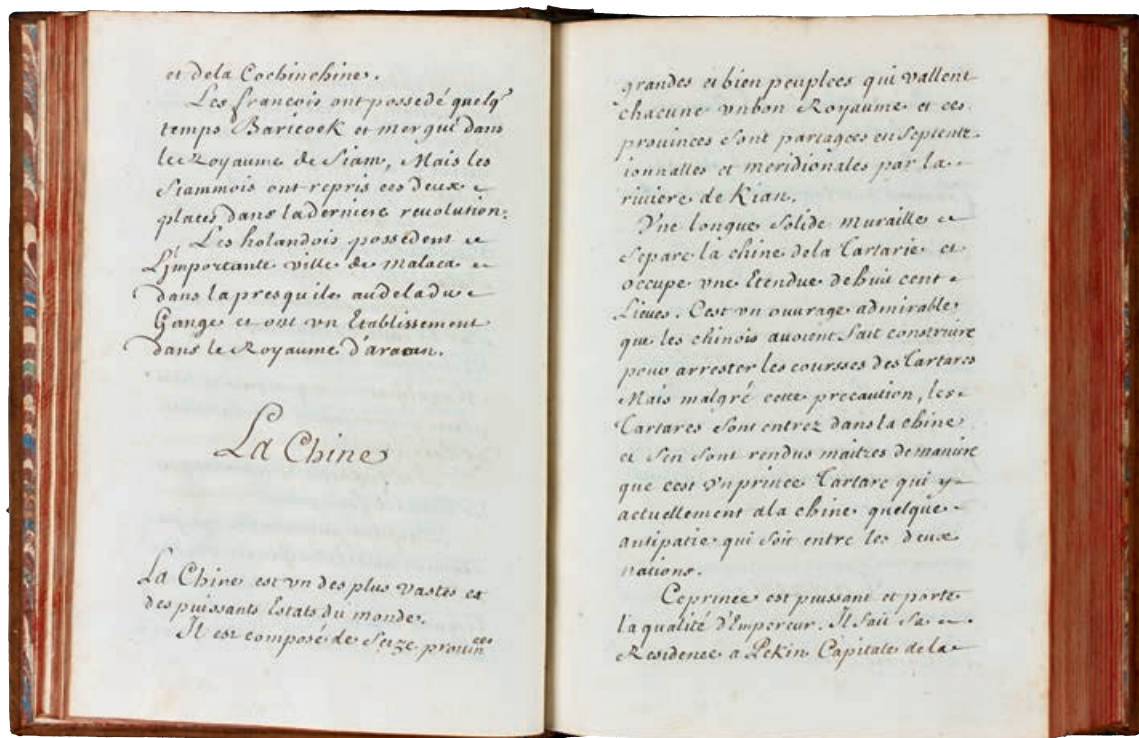 et dela Cochinchine.
Les francois ont possedé quelq̃
temps Baricoek et mergui dans
le Royaume de Siam, Mais les
Siammois ont repris ces deux
places dans la derniere revolution.
Les holandois possedent
L'importante ville de malaca
dans la presqu ile audela du
Gange et ont vn Etablissement
dans le Royaume d'aracan.
La Chine
La Chine est vn des plus vastes et
des puissants Estats du monde.
Il est composé de Seize prouin ces
grandes et bien peuplees qui vallent
chacune vn bon Royaume et ces
prouinces sont partagees en Septent-
ionnalles et meridionales par la
riviere de Kian.
Vne longue solide muraille
separe la chine dela Tartarie et
occupe vne Etendue de huit cent
Lieues. C'est vn ouurage admirable
que les chinois auoient fait construire
pour arrester les coursses des Tartares
Mais malgré cette precaution, les
Tartares sont entrez dans la chine
et s'en sont rendus maitres de maniere
que cest vn prince Tartare qui y
actuellement a la chine quelque
antipatie qui soit entre les deux
nations.
Ce prince est puissant et porte
la qualité d'Empereur. Il fait Sa
Residence a Pekin Capitale de la